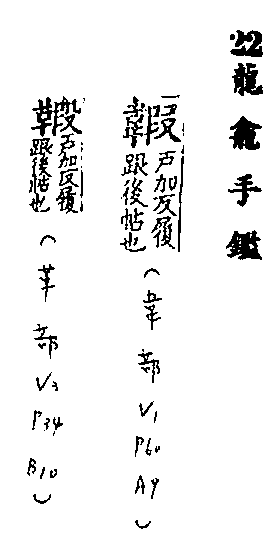 22龍龕手鑑
戸加反履
跟後帖也
(韋部V1P60A9)
戸加反履
跟後帖也
(革部V3P34B10)